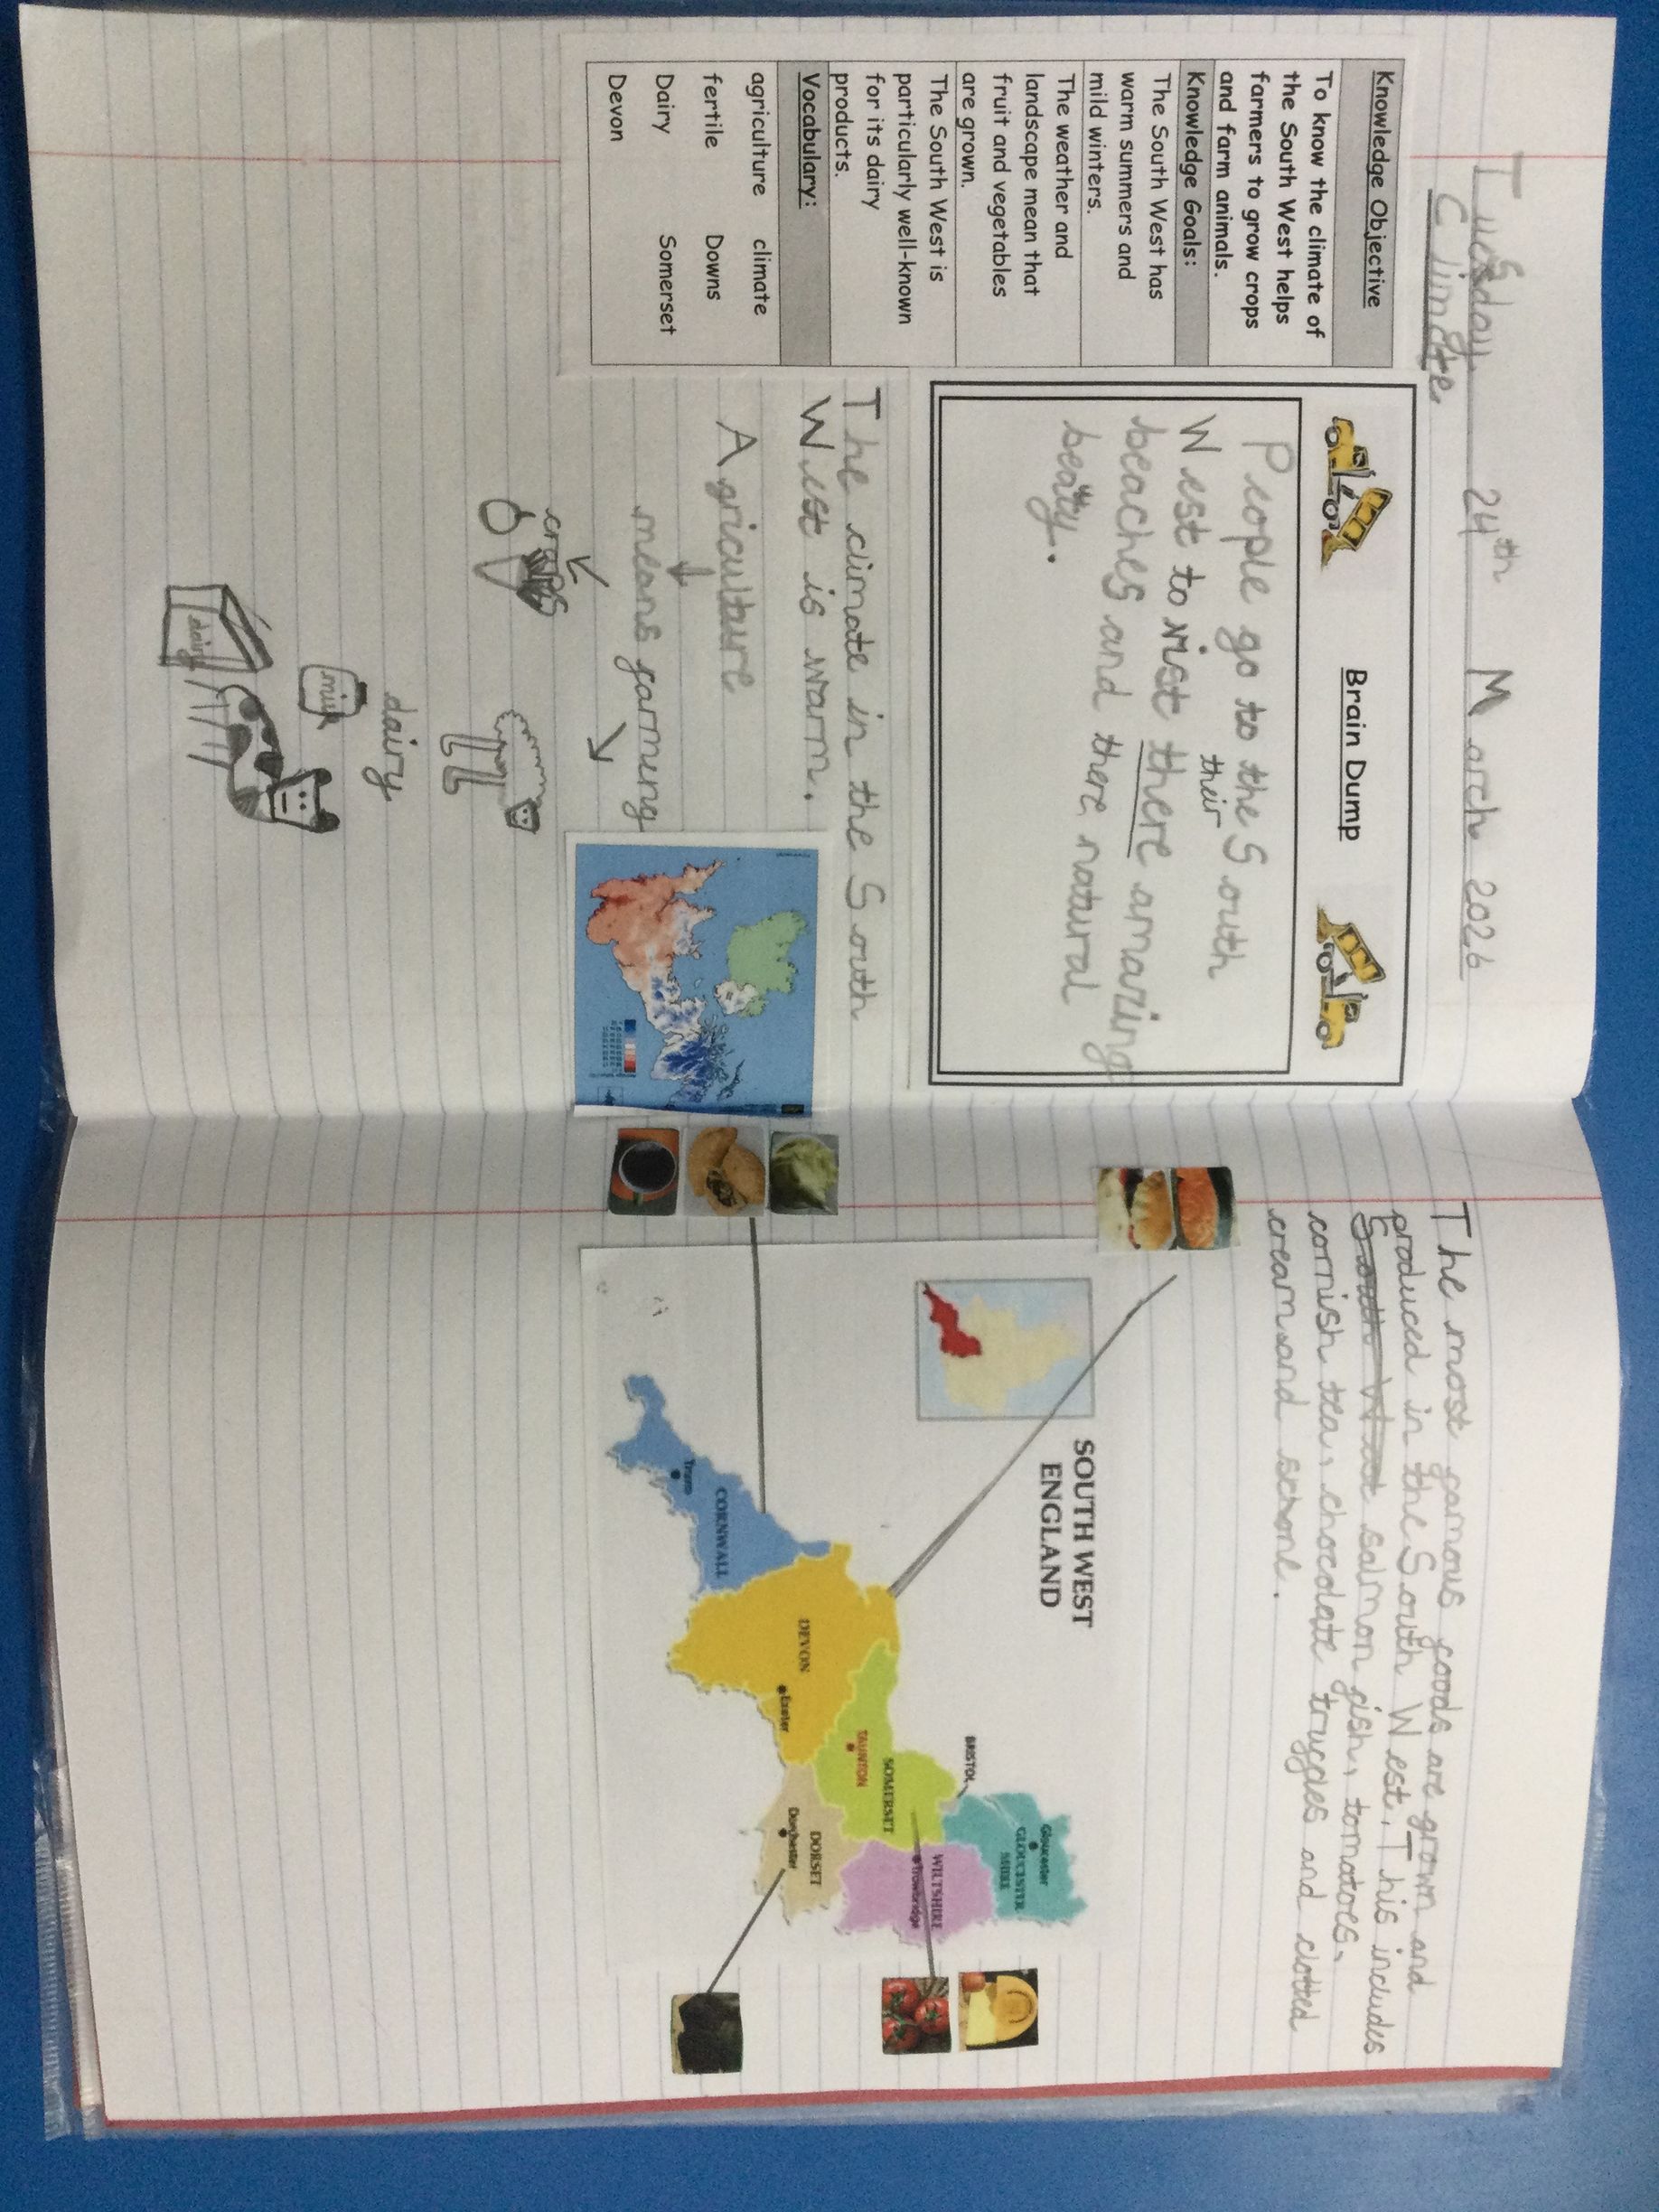 Tuesday 24th March 2026
Climate
Knowledge Objective
To know the climate of
the South West helps
farmers to grow crops
and farm animals.
Knowledge Goals:
The South West has
warm summers and
mild winters.
The weather and
landscape mean that
fruit and vegetables
are grown.
The South West is
particularly well-known
for its dairy
products.
Vocabulary:
agriculture climate
fertile Downs
Dairy Somerset
Devon
Brain Dump
People go to the South
their
West to vist there amazing
beaches and there natural
beauty.
The climate in the South
West is warm.
Agriculture
means farming
crops
dairy
milk
dairy
The most famous foods are grown and
produced in the South West. This includes
South West salmon fish, tomatoes,
cornish tea, chocolate truffles and clotted
cream and schone.
SOUTH WEST
ENGLAND
Gloucester
GLOUCESTER
SHIRE
BRISTOL
WILTSHIRE
Trowbridge
SOMERSET
TAUNTON
DORSET
Dorchester
DEVON
Exeter
CORNWALL
Truro